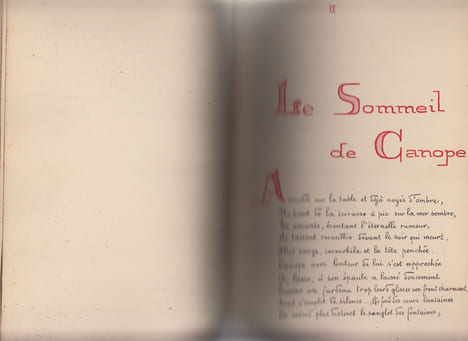 IX
Le Sommeil
de Canope
sur la table et déjà noyés d'ombre,
haut de la terrasse à pic sur la mer sombre,
amants, écoutant l'éternelle rumeur,
Se taisent recueillis devant le soir qui meurt.
songe, immobile et la tête penchée.
Canope avec lenteur de lui s'est approchée
Et, lasse, à son épaule a laissé doucement
Comme un fardeau trop lourd glisser son front charmant,
Tout s'emplit de silence... Au fond des cours lointaines
plus distinct le sanglot des fontaines;